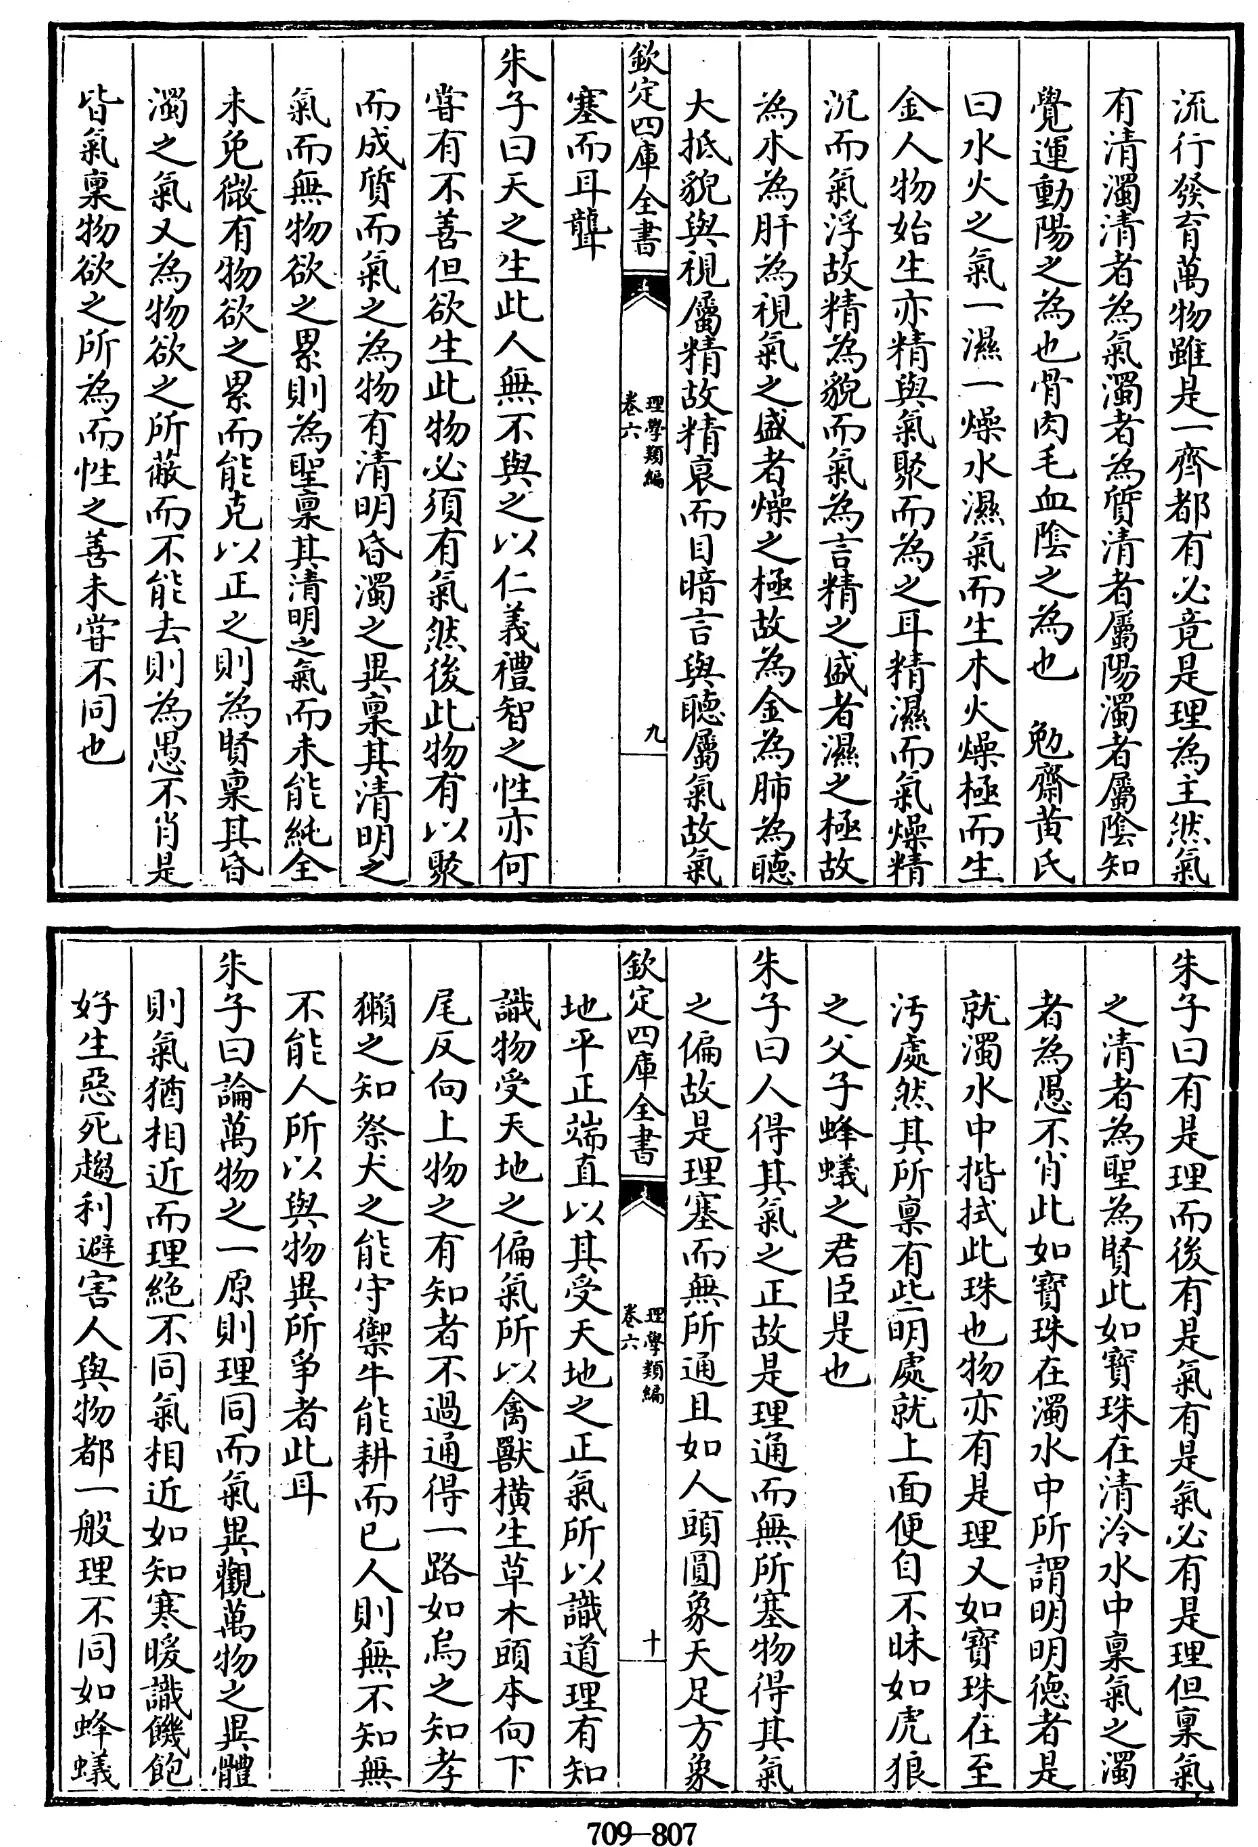 流行發育萬物雖是一齊都有必竟是理為主然氣
有清濁清者為氣濁者為質清者屬陽濁者屬陰知
覺運動陽之為也骨肉毛血陰之為也　勉齋黃氏
曰水火之氣一濕一燥水濕氣而生木火燥極而生
金人物始生亦精與氣聚而為之耳精濕而氣燥精
沉而氣浮故精為貌而氣為言精之盛者濕之極故
為木為肝為視氣之盛者燥之極故為金為肺為聽
大抵貌與視屬精故精衰而目暗言與聽屬氣故氣
欽定四庫全書
理學類編
卷六
九
塞而耳聾
朱子曰天之生此人無不與之以仁義禮智之性亦何
嘗有不善但欲生此物必須有氣然後此物有以聚
而成質而氣之為物有清明昏濁之異稟其清明之
氣而無物欲之累則為聖稟其清明之氣而未能純全
未免微有物欲之累而能克以正之則為賢稟其昏
濁之氣又為物欲之所蔽而不能去則為愚不肖是
皆氣稟物欲之所為而性之善未嘗不同也
朱子曰有是理而後有是氣有是氣必有是理但稟氣
之清者為聖為賢此如寶珠在清泠水中稟氣之濁
者為愚不肖此如寶珠在濁水中所謂明明德者是
就濁水中揩拭此珠也物亦有是理又如寶珠在至
汚處然其所稟有些明處就上面便自不昧如虎狼
之父子蜂蟻之君臣是也
朱子曰人得其氣之正故是理通而無所塞物得其氣
之偏故是理塞而無所通且如人頭圓象天足方象
欽定四庫全書
理學類編
卷六
十
地平正端直以其受天地之正氣所以識道理有知
識物受天地之偏氣所以禽獸橫生草木頭本向下
尾反向上物之有知者不過通得一路如烏之知孝
獺之知祭犬之能守禦牛能耕而已人則無不知無
不能人所以與物異所爭者此耳
朱子曰論萬物之一原則理同而氣異觀萬物之異體
則氣猶相近而理絶不同氣相近如知寒暖識饑飽
好生惡死趨利避害人與物都一般理不同如蜂蟻
709—807